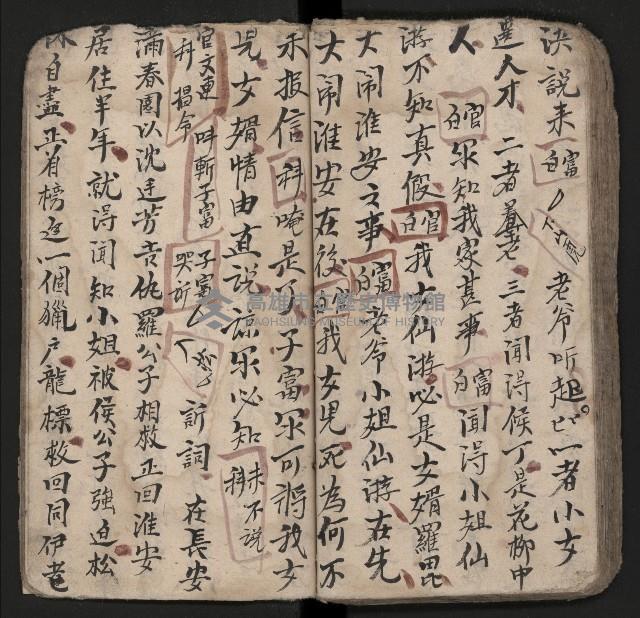 決說来 富白 不 老爷听起 一者小女
選人才 二者養老 三者聞得侯丁是花柳中
人 官白 尔知我家甚事 富白 聞得小姐仙
游不知真假 官白 我女仙游必是女婿羅毘
大闹淮安之事 富白 老爷小姐仙游在先
大闹淮安在後 官白 我女児死為何不
来报信 科 唵是吴子富尔可將我女
児女婿情由直說 諒尔必知 未科不說
官文連科揭令 呌斬子富 子富哭听 訴詞 在長安
滿春園以沈廷芳告仇羅公子相救正回淮安
居住半年就得聞知小姐被侯公子強迫松
林自盡正有榜 一個猟戶龍標救回同伊老
高雄市立歷史博物館
KAOHSIUNG MUSEUM OF HISTORY